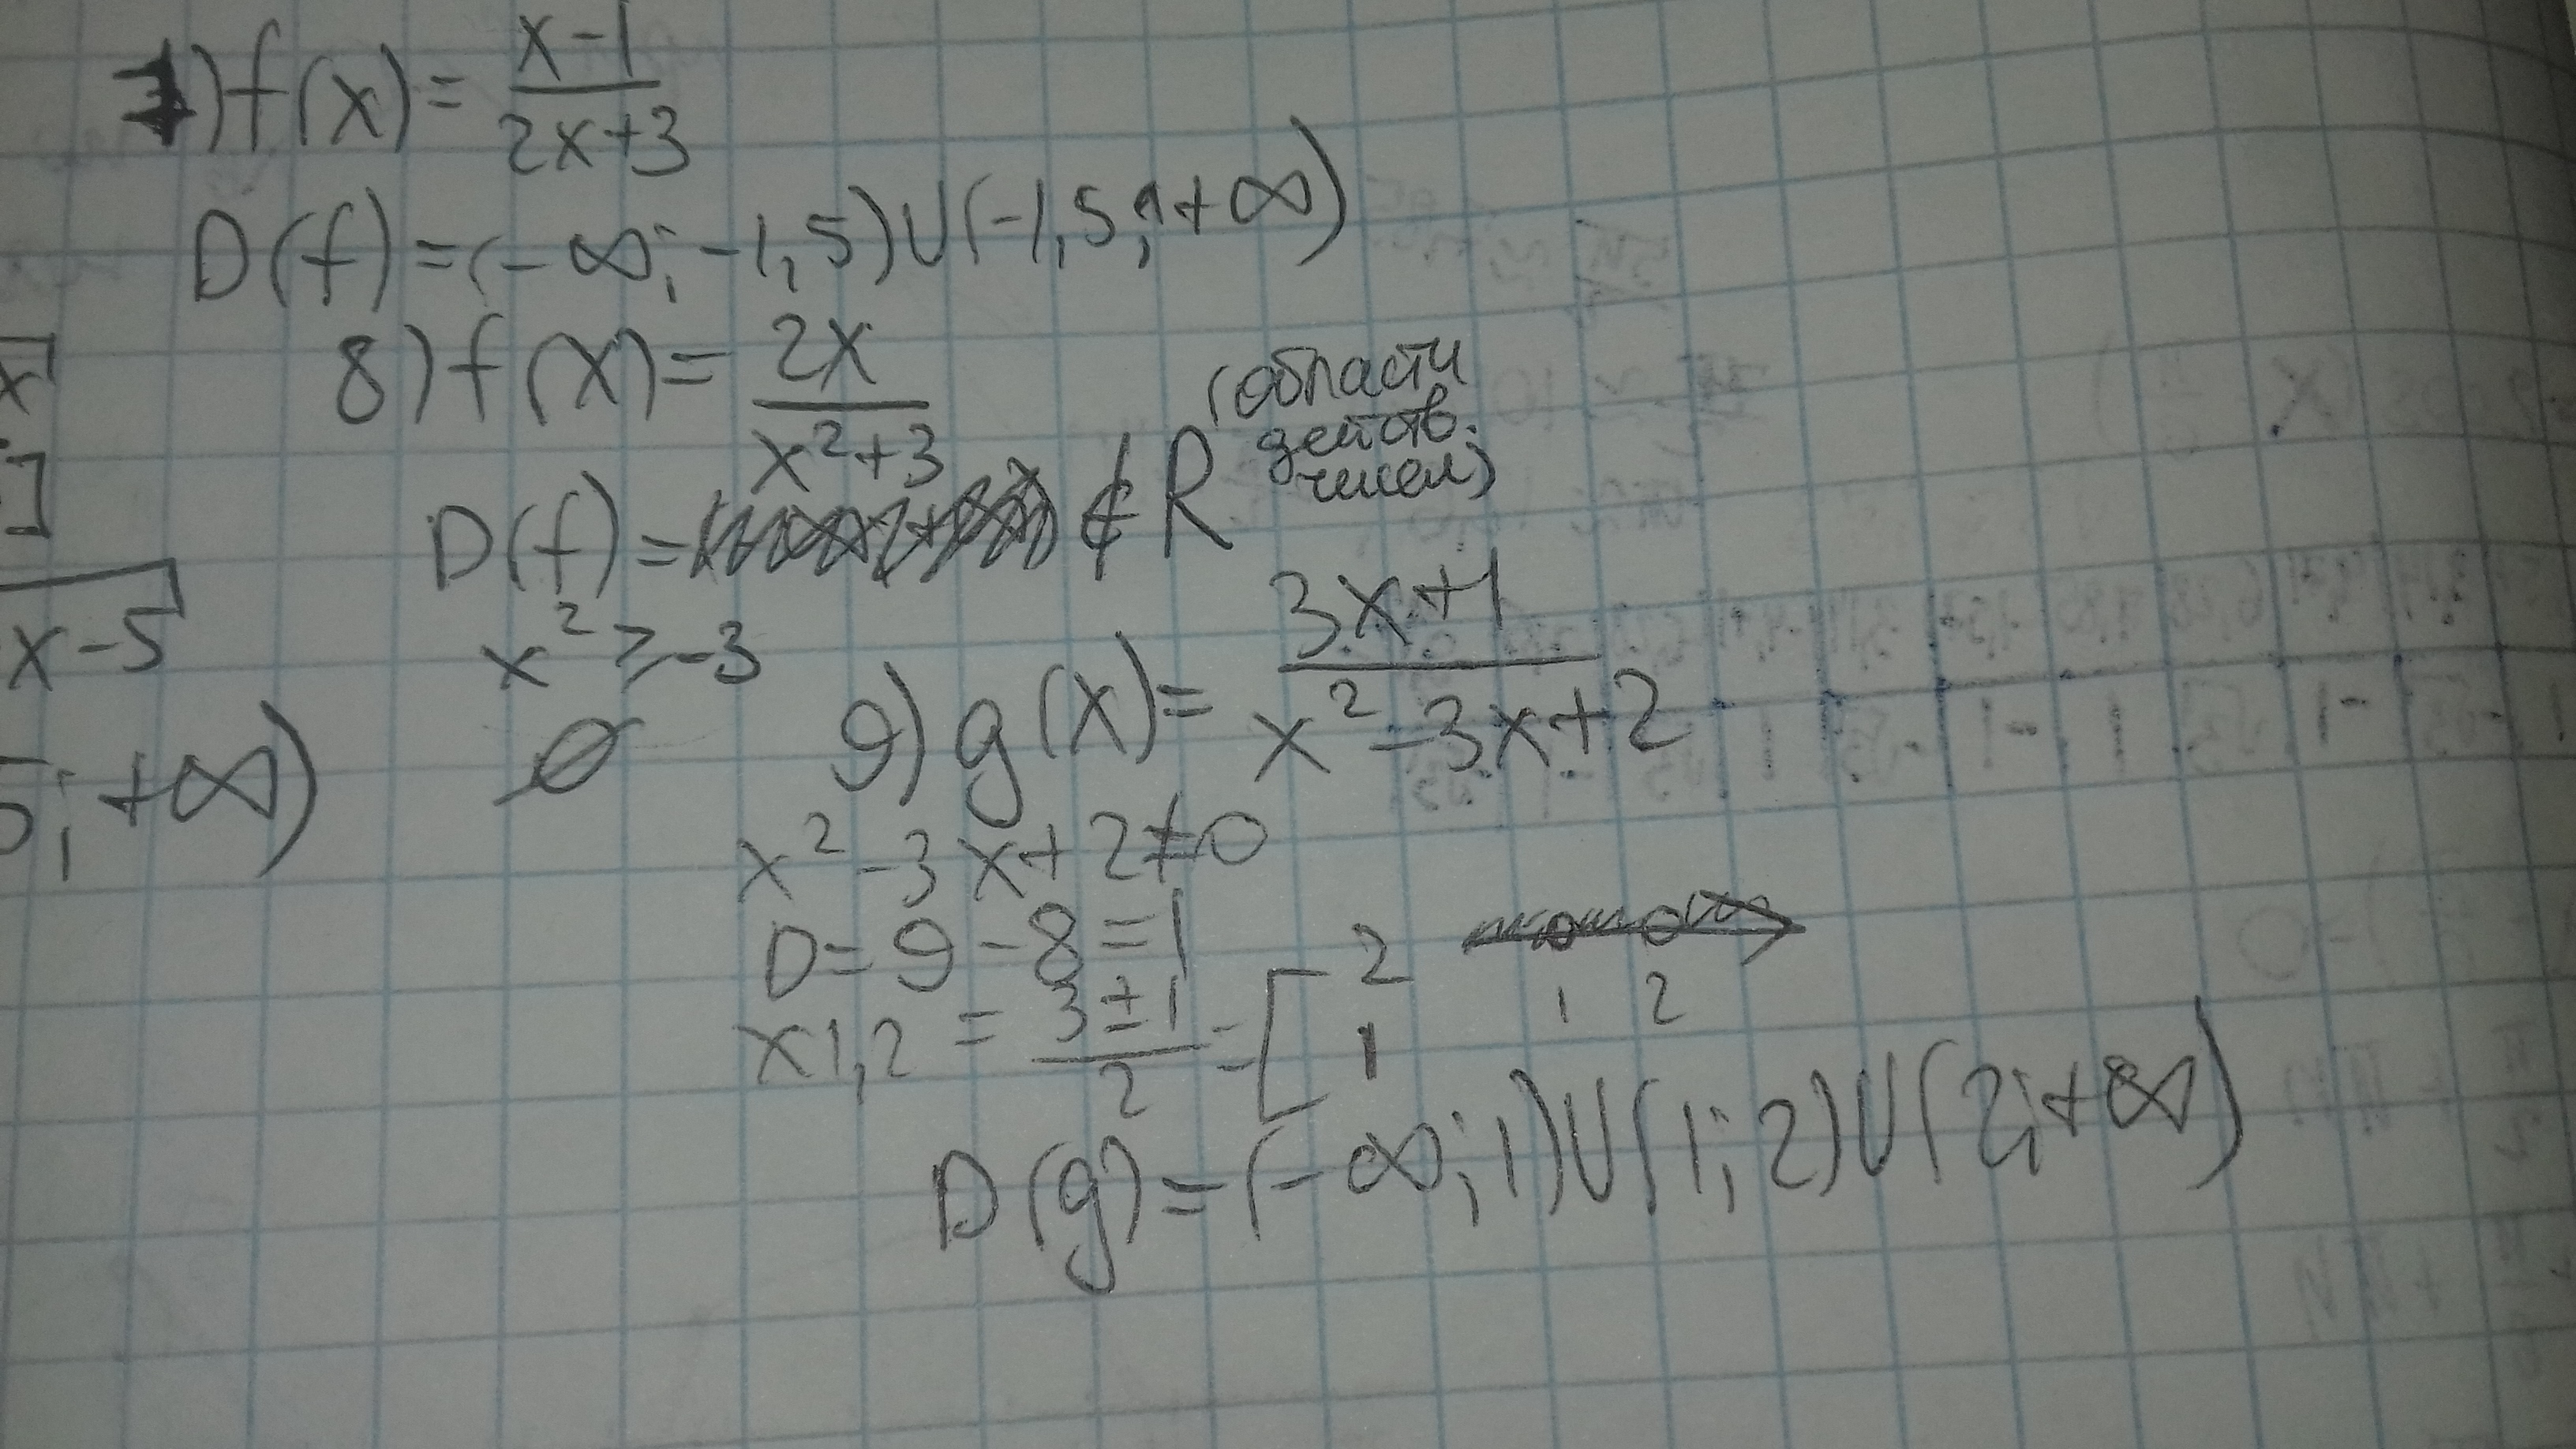 7) f(x) = x-1 / 2x+3
D(f) = (-∞; -1,5) U (-1,5; +∞)
8) f(x) = 2x / x²+3
D(f) = ∉ R (области
действ.
чисел)
x² ≥ -3
∅
x
]
x-5
5; +∞)
9) g(x) = 3x+1 / x²-3x+2
x²-3x+2≠0
D = 9-8=1
x1,2 = 3±1 / 2 = [ 2
1
1 2
D(g) = (-∞; 1) U (1; 2) U (2; +∞)